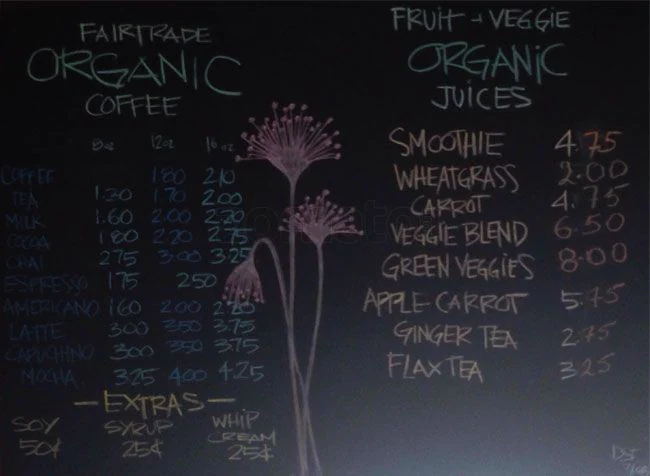 FAIRTRADE
ORGANIC
COFFEE
8oz 12oz 16oz
COFFEE 1.80 2.10
TEA 1.30 1.70 2.00
MILK 1.60 2.00 2.30
COCOA 1.80 2.20 2.75
CHAI 2.75 3.00 3.25
ESPRESSO 1.75 2.50
AMERICANO 1.60 2.00 2.20
LATTE 3.00 3.50 3.75
CAPUCHINO 3.00 3.50 3.75
MOCHA 3.25 4.00 4.25
-EXTRAS-
SOY SYRUP WHIP CREAM
50¢ 25¢ 25¢
FRUIT + VEGGIE
ORGANIC
JUICES
SMOOTHIE 4.75
WHEATGRASS 2.00
CARROT 4.75
VEGGIE BLEND 6.50
GREEN VEGGIES 8.00
APPLE-CARROT 5.75
GINGER TEA 2.75
FLAX TEA 3.25